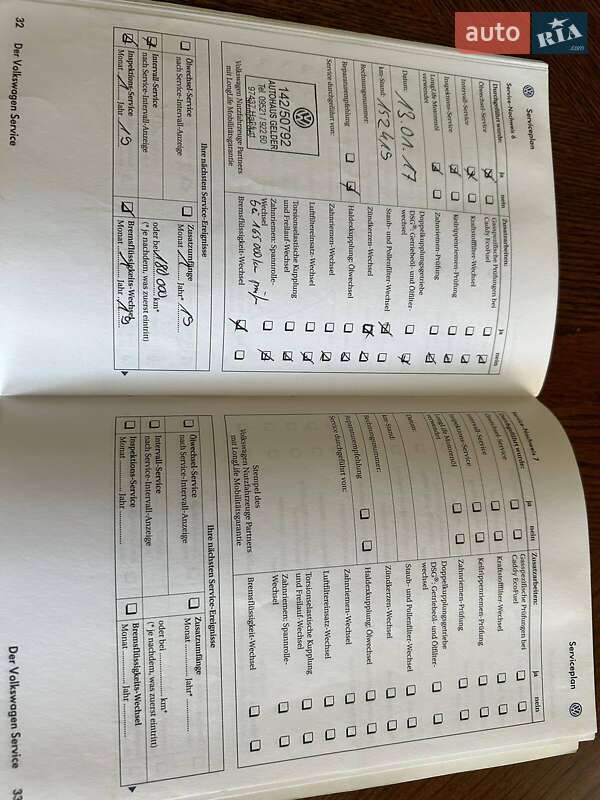 auto RIA .com
Serviceplan
Service-Nachweis 6
Durchgeführt wurde: ja nein
Ölwechsel-Service
Intervall-Service
Inspektions-Service
LongLife Motorenöl
verwendet
Datum: 13.01.17
km-Stand: 152419
Rechnungsnummer:
Reparaturempfehlung
Service durchgeführt von:
142/50792
AUTOHAUS GELDER
Volkswagen Nutzfahrzeuge Partners
mit LongLife Mobilitätsgarantie
Zusatzarbeiten: ja nein
Gasspezifische Prüfungen bei
Caddy EcoFuel
Kraftstofffilter-Wechsel
Keilrippenriemen-Prüfung
Zahnriemen-Prüfung
Doppelkupplungsgetriebe
DSG®: Getriebeöl- und Ölfilter
wechsel
Staub- und Pollenfilter-Wechsel
Zündkerzen-Wechsel
Haldenkupplung: Ölwechsel
Zahnriemen-Wechsel
Luftfiltereinsatz-Wechsel
Torsionselastische Kupplung
und Freilauf-Wechsel
Zahnriemen: Spannrolle-
Wechsel
Bremsflüssigkeits-Wechsel
Ihre nächsten Service-Ereignisse
Ölwechsel-Service
nach Service-Intervall-Anzeige
Intervall-Service
nach Service-Intervall-Anzeige
Inspektions-Service
Monat 1 Jahr 19
Zusatzumfänge
Monat 1 Jahr* 19
oder bei 180 000 km*
(* je nachdem, was zuerst eintritt)
Bremsflüssigkeits-Wechsel
Monat 1 Jahr 19
32 Der Volkswagen Service
Serviceplan
Service-Nachweis 7
Durchgeführt wurde: ja nein
Ölwechsel-Service
Intervall-Service
Inspektions-Service
LongLife Motorenöl
verwendet
Datum:
km-Stand:
Rechnungsnummer:
Reparaturempfehlung
Service durchgeführt von:
Stempel des
Volkswagen Nutzfahrzeuge Partners
mit LongLife Mobilitätsgarantie
Zusatzarbeiten: ja nein
Gasspezifische Prüfungen bei
Caddy EcoFuel
Kraftstofffilter-Wechsel
Keilrippenriemen-Prüfung
Zahnriemen-Prüfung
Doppelkupplungsgetriebe
DSG®: Getriebeöl- und Ölfilter
wechsel
Staub- und Pollenfilter-Wechsel
Zündkerzen-Wechsel
Haldenkupplung: Ölwechsel
Zahnriemen-Wechsel
Luftfiltereinsatz-Wechsel
Torsionselastische Kupplung
und Freilauf-Wechsel
Zahnriemen: Spannrolle-
Wechsel
Bremsflüssigkeit-Wechsel
Ihre nächsten Service-Ereignisse
Ölwechsel-Service
nach Service-Intervall-Anzeige
Intervall-Service
nach Service-Intervall-Anzeige
Inspektions-Service
Monat ............ Jahr ............
Zusatzumfänge
Monat ............ Jahr* ............
oder bei ............ km*
(* je nachdem, was zuerst eintritt)
Bremsflüssigkeits-Wechsel
Monat ............ Jahr ............
Der Volkswagen Service 33